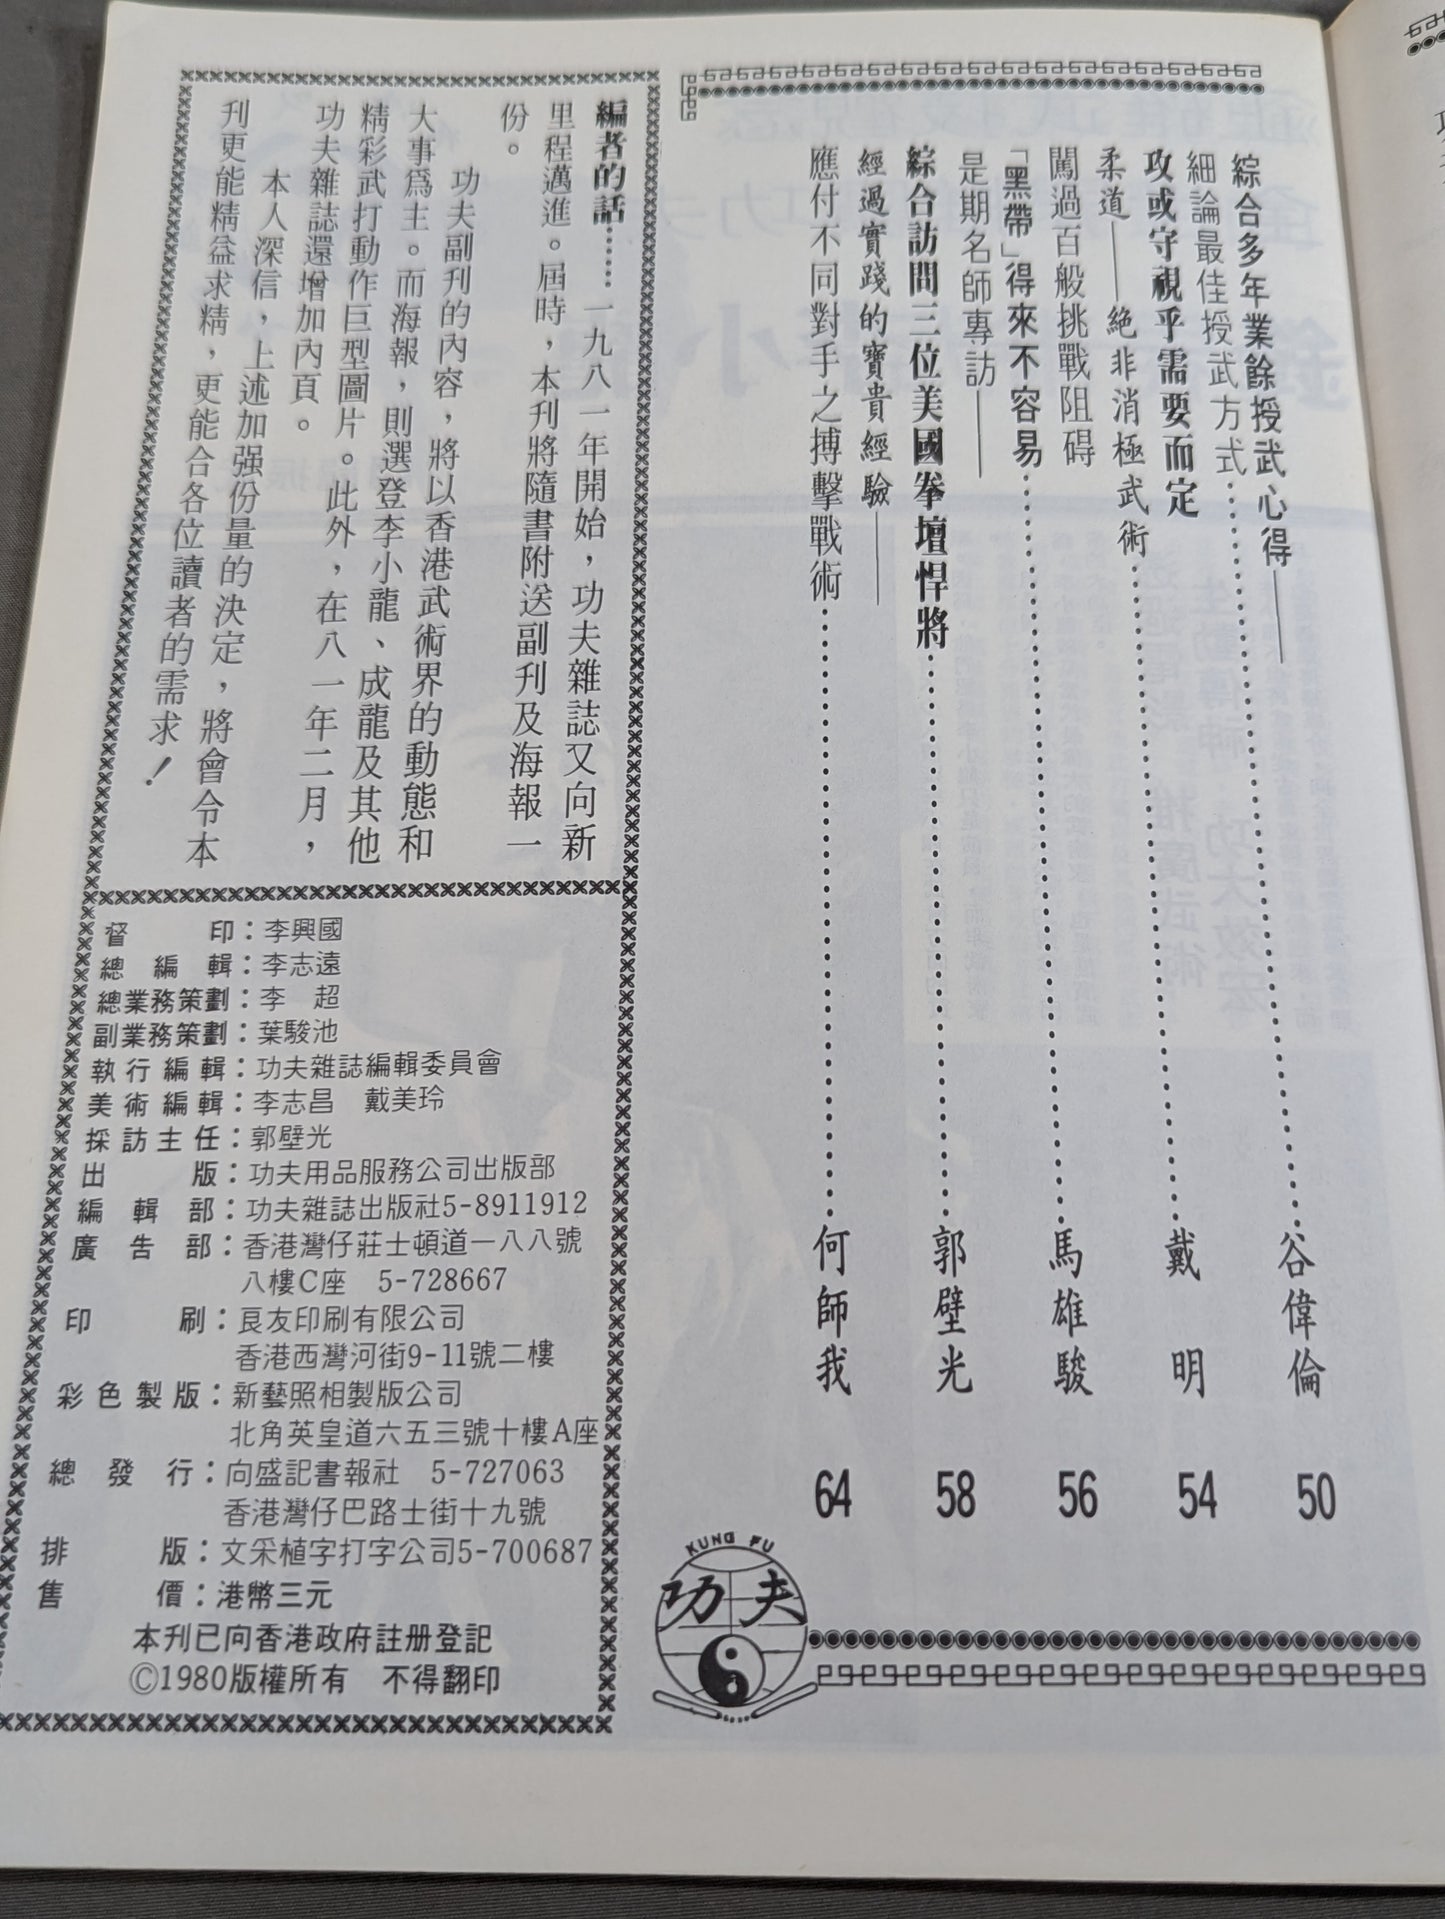 綜合多年業餘授武心得——
細論最佳授武方式……谷偉倫 50
攻或守視乎需要而定
柔道——絶非消極武術……戴 明 54
闖過百般挑戰阻碍
「黑帶」得來不容易……馬雄駿 56
是期名師專訪——
綜合訪問三位美國拳壇悍將……郭壁光 58
經過實踐的寶貴經驗——
應付不同對手之搏擊戰術……何師我 64
KUNG FU
功夫
編者的話……一九八一年開始，功夫雜誌又向新
里程邁進。屆時，本刊將隨書附送副刊及海報一
份。
功夫副刊的內容，將以香港武術界的動態和
大事爲主。而海報，則選登李小龍、成龍及其他
精彩武打動作巨型圖片。此外，在八一年二月，
功夫雜誌還增加內頁。
本人深信，上述加强份量的決定，將會令本
刊更能精益求精，更能合各位讀者的需求！
督印：李興國
總編輯：李志遠
總業務策劃：李 超
副業務策劃：葉駿池
執行編輯：功夫雜誌編輯委員會
美術編輯：李志昌 戴美玲
採訪主任：郭壁光
出版：功夫用品服務公司出版部
編輯部：功夫雜誌出版社5-8911912
廣告部：香港灣仔莊士頓道一八八號
八樓C座 5-728667
印刷：良友印刷有限公司
香港西灣河街9-11號二樓
彩色製版：新藝照相製版公司
北角英皇道六五三號十樓A座
總發行：向盛記書報社 5-727063
香港灣仔巴路士街十九號
排版：文采植字打字公司5-700687
售價：港幣三元
本刊已向香港政府註册登記
©1980版權所有 不得翻印